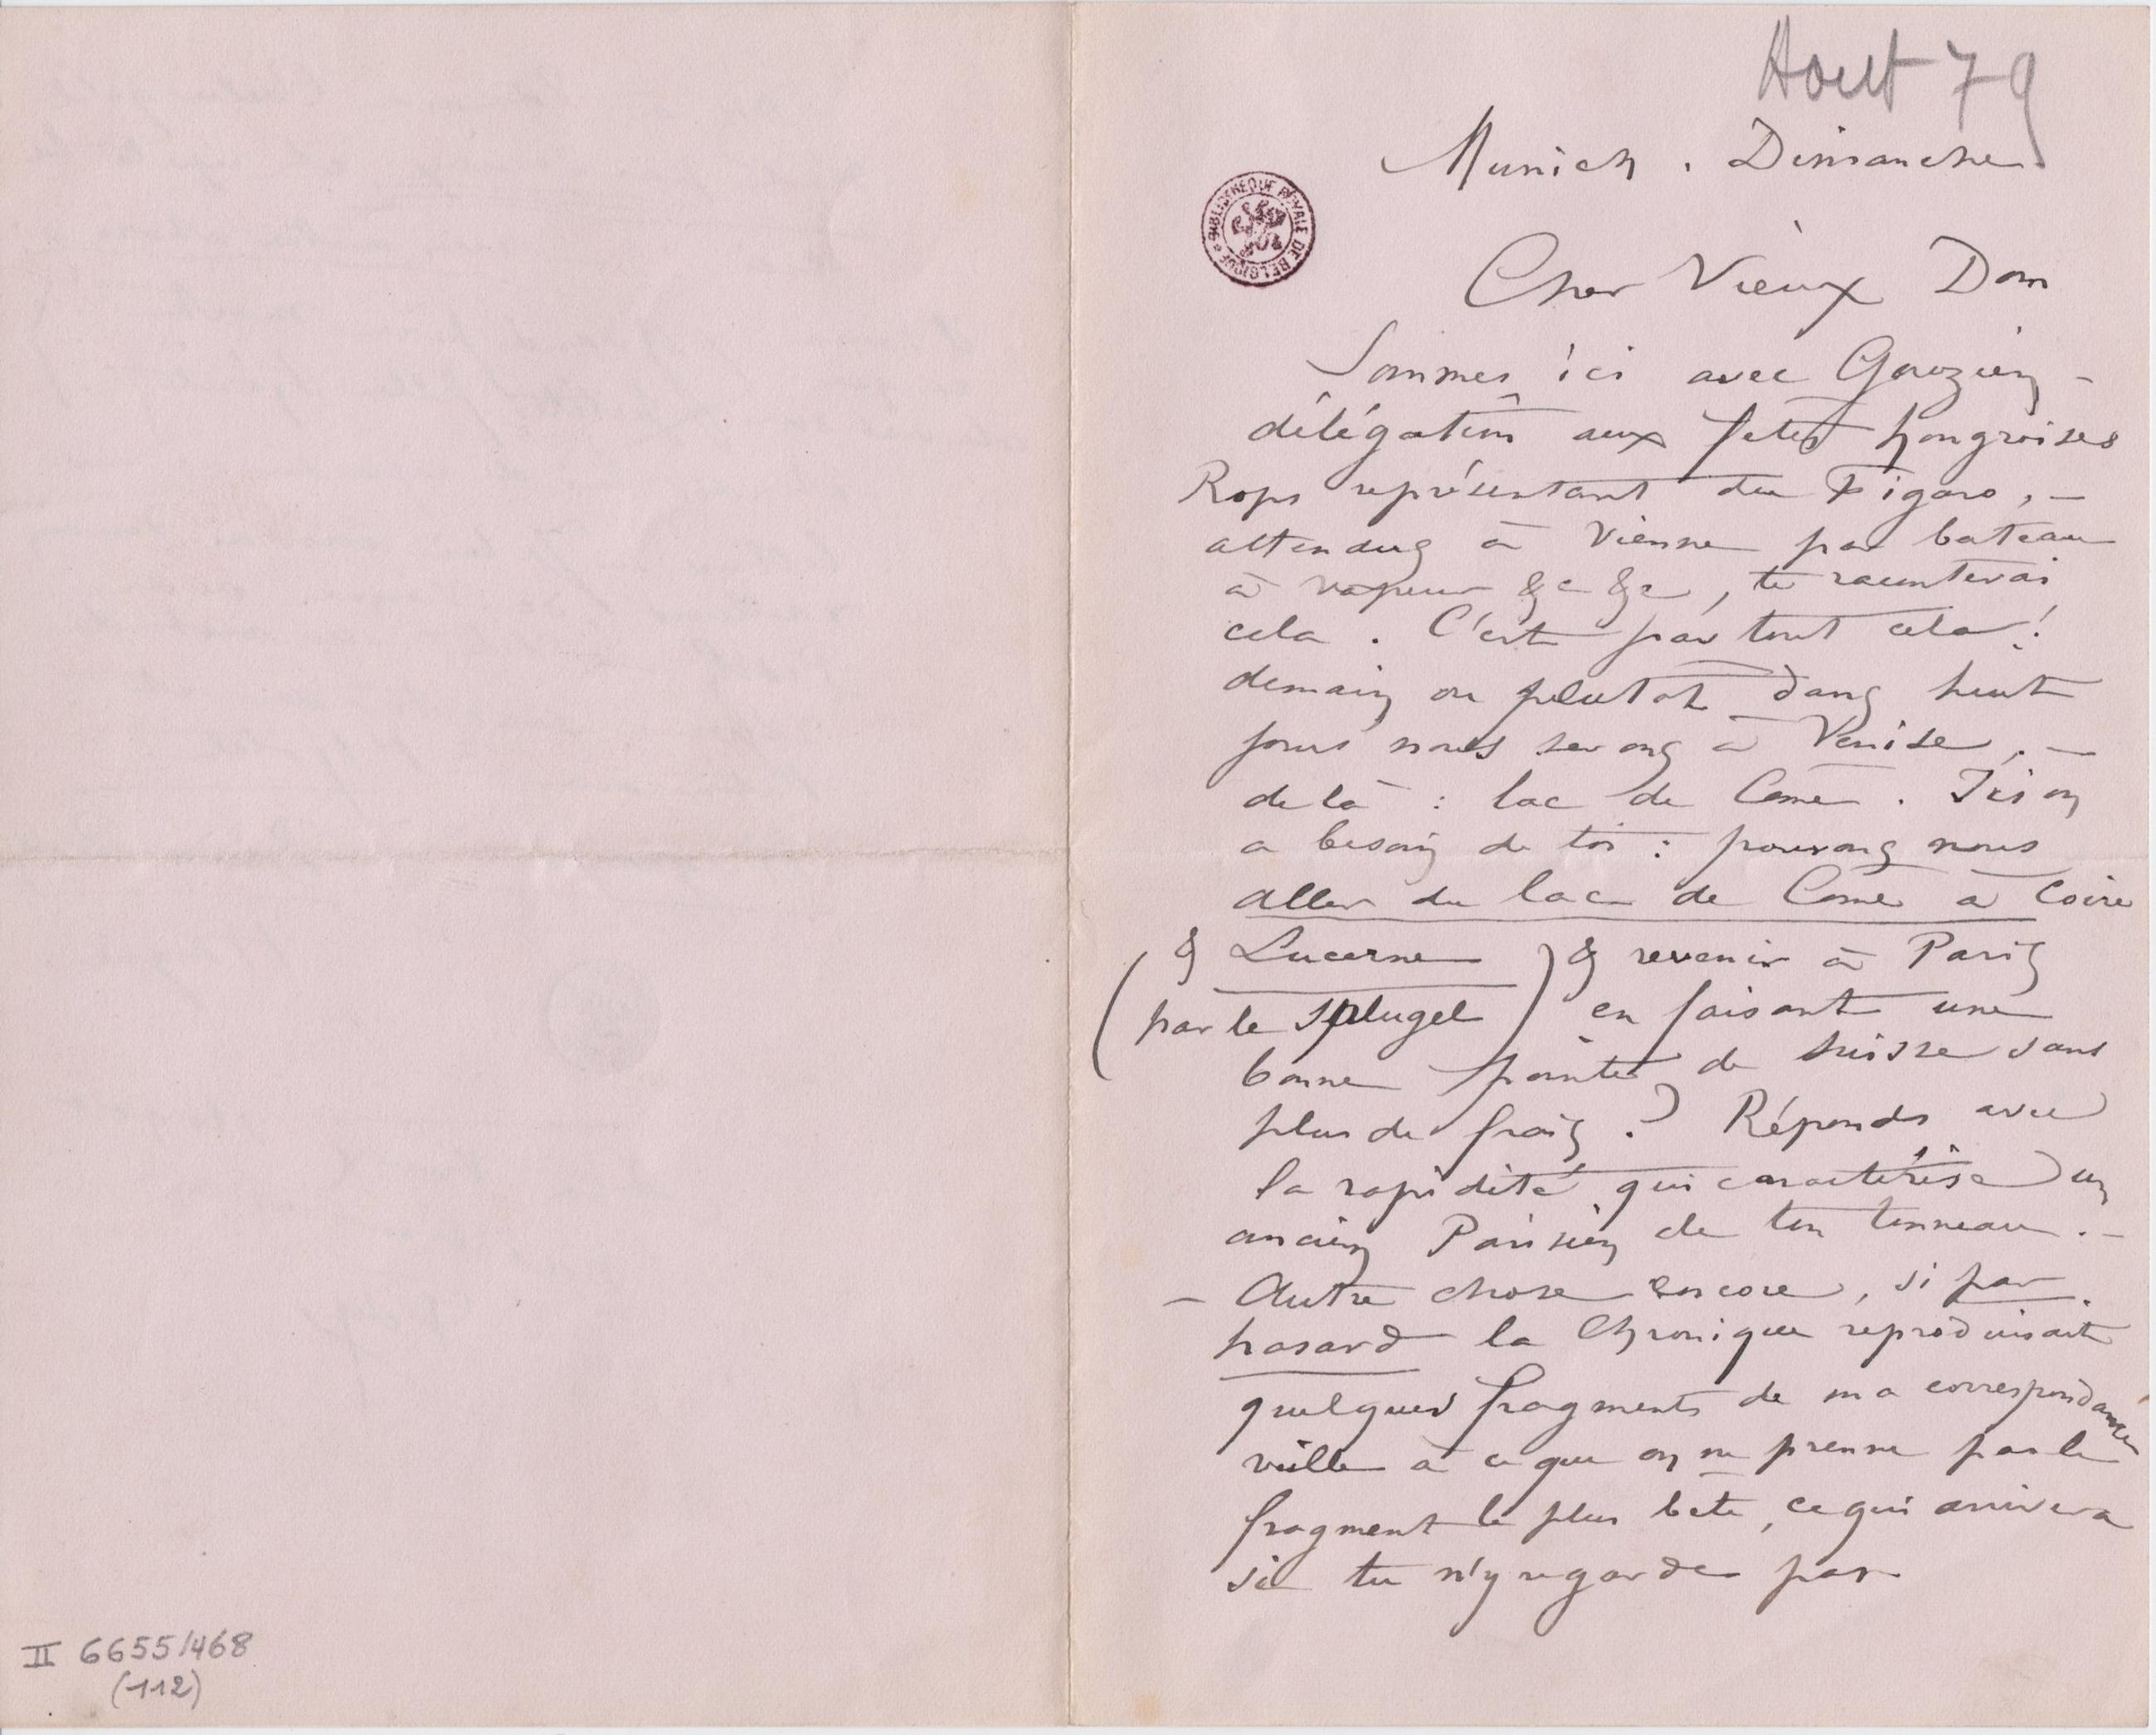 Aout 79
Munich. Dimanche
BIBLIOTHÈQUE ROYALE DE BELGIQUE
Cher Vieux Dom
Sommes ici avec Gouzien –
délégation aux fêtes hongroises
Rops représentant du Figaro, –
attendus à Vienne par bateau
à vapeur &c &c, te raconterai
cela. C'est par tout cela !
demain ou plutot dans huit
jours nous serons à Venise, –
de là : lac de Come. Ici on
a besoin de toi : pouvons nous
aller du lac de Come à Coire
& Lucerne ) & revenir à Paris
(par le Splugel ) en faisant une
bonne pointe de Suisse sans
plus de frais ? Réponds avec
la rapidité qui caractérise un
ancien Parisien de ton tonneau. –
– Autre chose encore, si par
hasard la Chronique reproduisait
quelques fragments de ma correspondance
veille à ce que on ne prenne pas le
fragment le plus bete, ce qui arrivera
si tu n'y regarde pas
II 6655/468
(112)